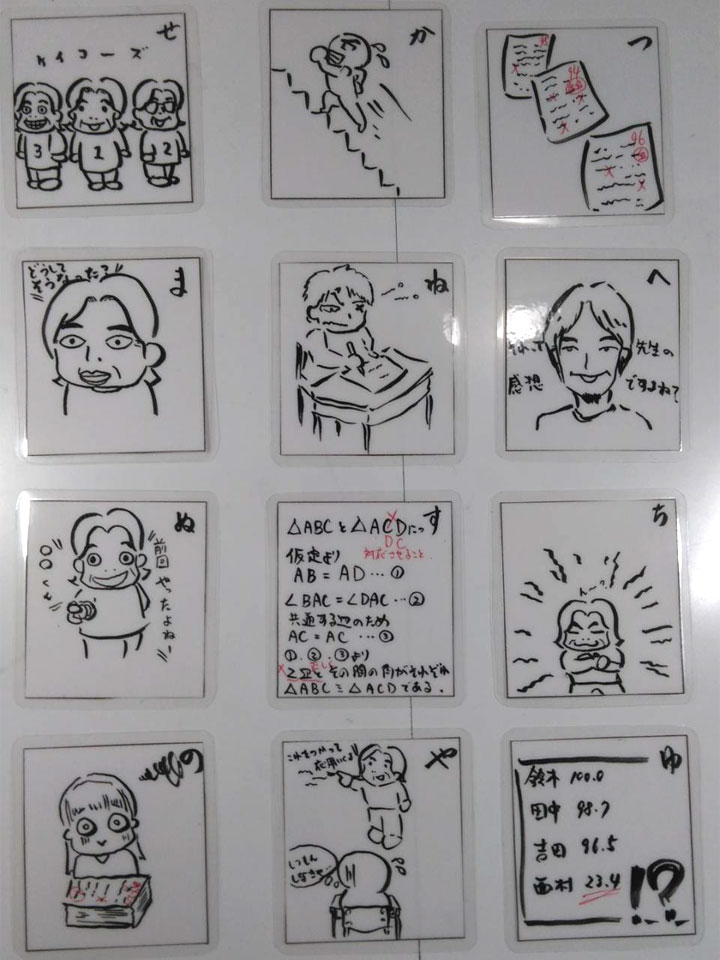 せ
ケイコーズ
3
1
2
か
つ
94
96
ま
どうして
そうなった?
ね
へ
先生の
感想
ですよね?
ぬ
前回
やったよねー
す
△ABCと△ACDにっ
DC
対応させること
仮定より
AB = AD … ①
∠BAC = ∠DAC … ②
共通する辺のため
AC = AC … ③
①、②、③より
2辺とその間の角がそれぞれ
△ABC≡△ACDである.
ち
の
や
これをつかって
しつもん
しなさせ
ゆ
鈴木 100.0
田中 98.7
吉田 96.5
西村 23.4
!?